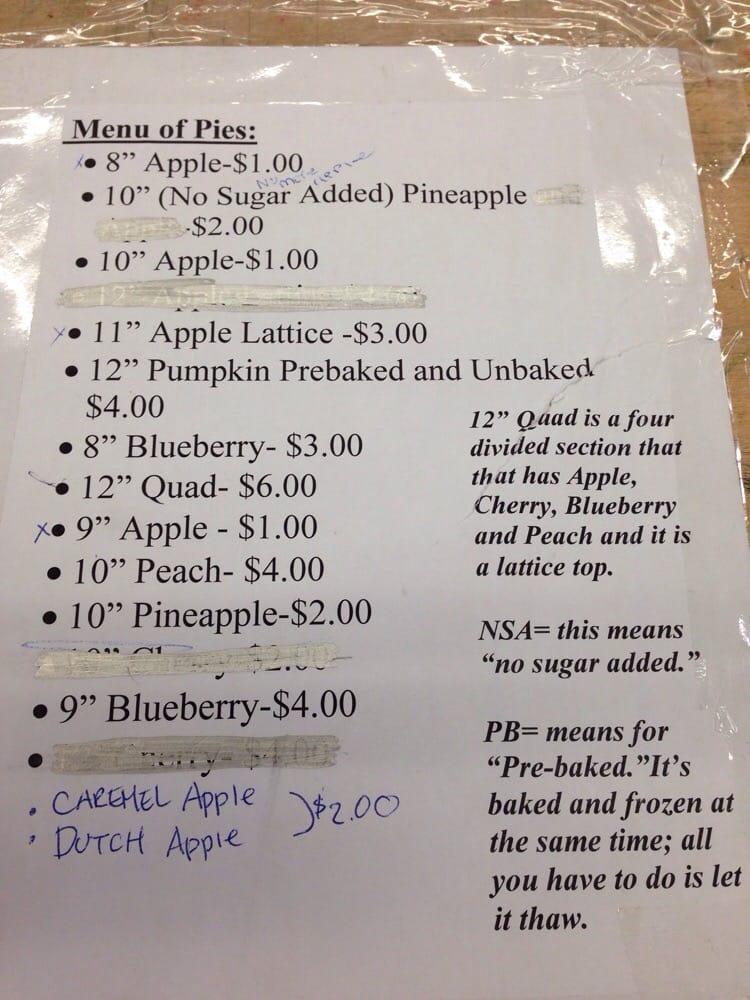 Menu of Pies:
• 8” Apple-$1.00
No more
• 10” (No Sugar Added) Pineapple
-$2.00
• 10” Apple-$1.00
x• 11” Apple Lattice -$3.00
• 12” Pumpkin Prebaked and Unbaked
$4.00
• 8” Blueberry- $3.00
• 12” Quad- $6.00
x• 9” Apple - $1.00
• 10” Peach- $4.00
• 10” Pineapple-$2.00
• 9” Blueberry-$4.00
•
• CAREMEL Apple
• DUTCH Apple )$2.00
12” Quad is a four
divided section that
that has Apple,
Cherry, Blueberry
and Peach and it is
a lattice top.
NSA= this means
“no sugar added.”
PB= means for
“Pre-baked.”It’s
baked and frozen at
the same time; all
you have to do is let
it thaw.